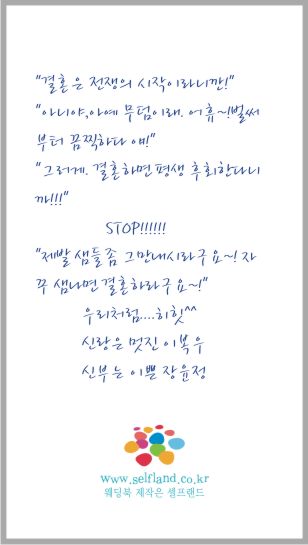 "결혼은 전쟁의 시작이라니깐!"
"아니야,아예 무덤이래. 어휴~!벌써
부터 끔찍하다 얘!"
"그러게. 결혼하면 평생 후회한다니
까!!!"
STOP!!!!!!
"제발 샘들 좀 그만내시라구요~! 자
꾸 샘나면 결혼하라구요~!"
우리처럼....히힛^^
신랑은 멋진 이복우
신부는 이쁜 장윤정
www.selfland.co.kr
웨딩북 제작은 셀프랜드